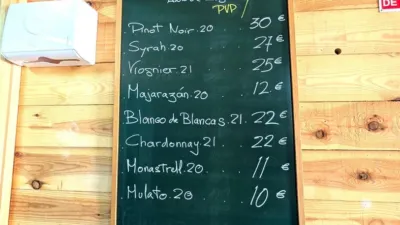 PVP
Pinot Noir.20 30 €
Syrah.20 27 €
Viognier.21 25 €
Majarazán.20 12 €
Blanco de Blancas.21. 22 €
Chardonnay.21 22 €
Monastrell.20 11 €
Mulato.20 10 €
DE